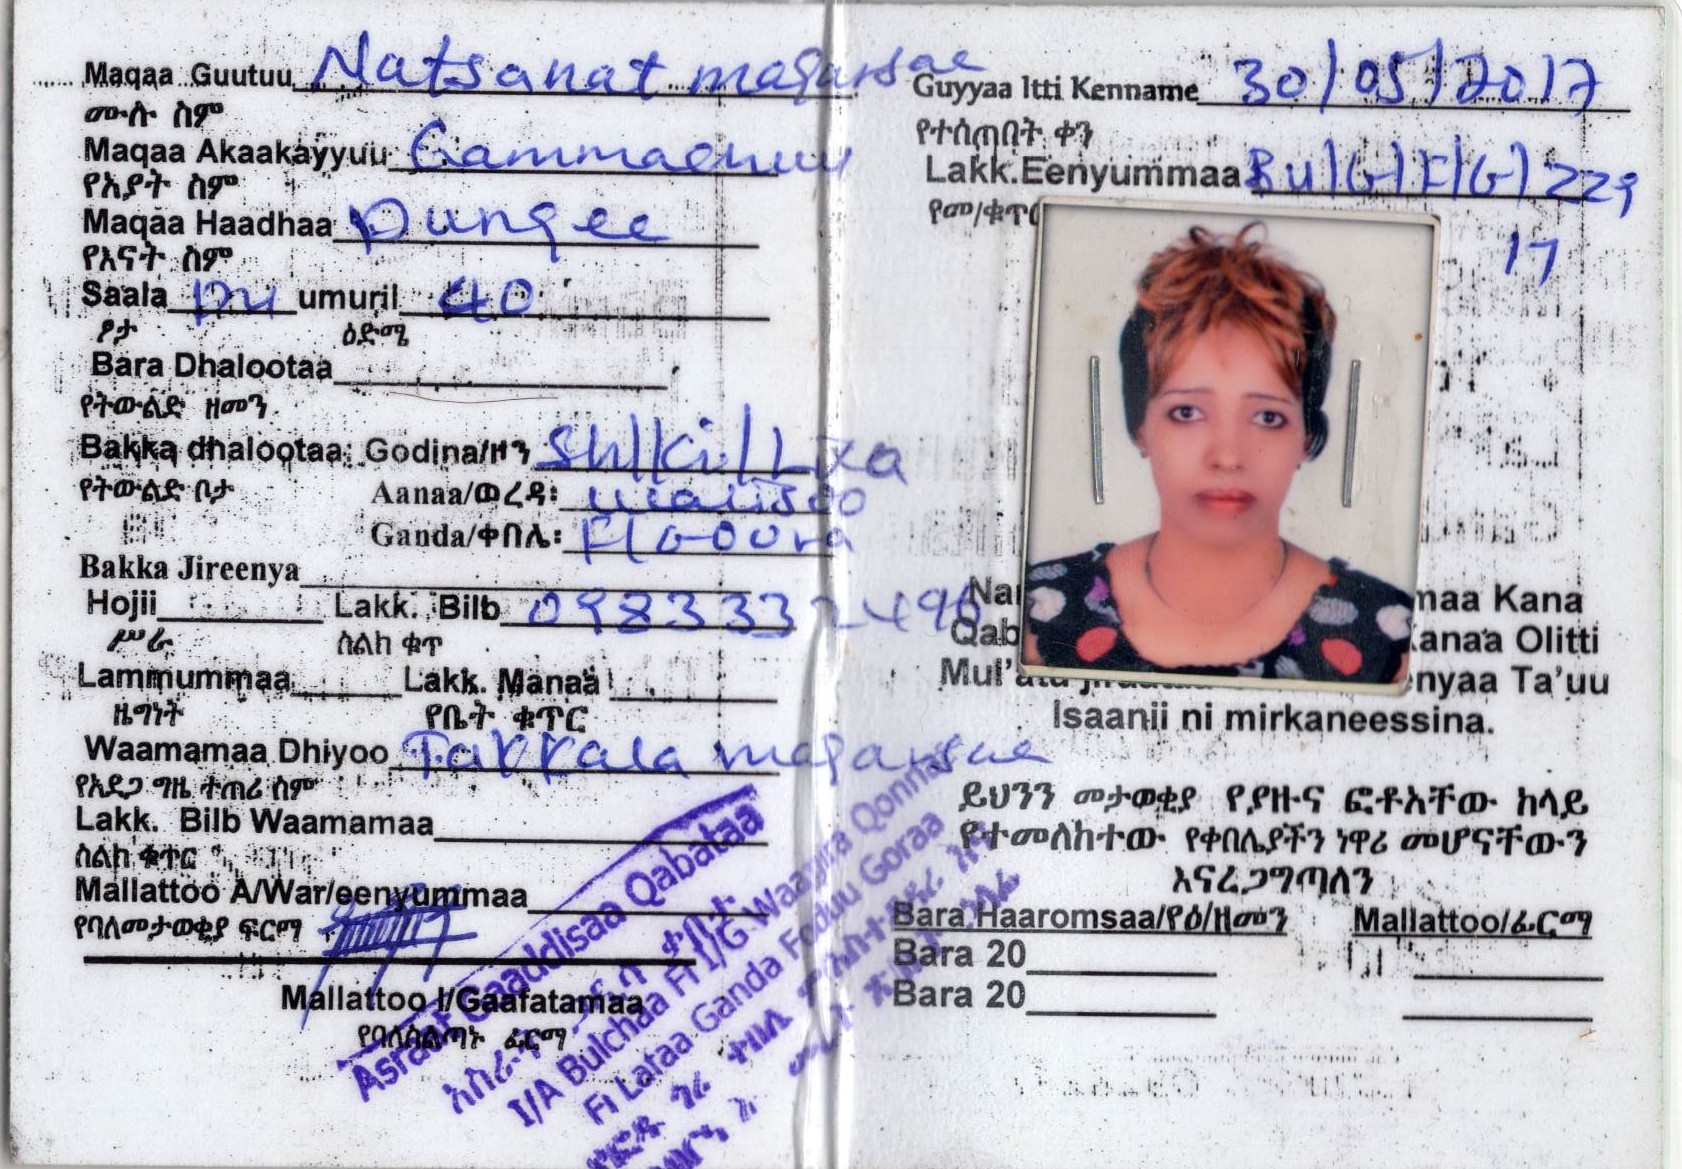 Maqaa Guutuu Natsanat magarsae
ሙሉ ስም
Maqaa Akaakayyuu
የአያት ስም
Maqaa Haadhaa Dungee
የእናት ስም
Saala Du umuril 40
ፆታ ዕድሜ
Bara Dhalootaa
የትውልድ ዘመን
Bakka dhalootaa: Godina/ዞን Sh/Ki/Lixa
የትውልድ ቦታ Aanaa/ወረዳ:
Ganda/ቀበሌ: F/Goora
Bakka Jireenya
Hojii Lakk. Bilb 0983332496
ሥራ ስልክ ቁጥ
Lammummaa Lakk. Manaa
ዜግነት የቤት ቁጥር
Waamamaa Dhiyoo Takkala magarsae
የአደጋ ግዜ ተጠሪ ስም
Lakk. Bilb Waamamaa
ስልክ ቁጥር
Mallattoo A/War/eenyummaa
የባለመታወቂያ ፍርማ
Mallattoo I/Gaafatamaa
የባለስልጣኑ ፊርማ
Guyyaa Itti Kenname 30/05/2017
የተሰጠበት ቀን
Lakk.Eenyummaa Bu/G/F/G/229
17
የመ/ቁጥ
maa Kana
Qab anaa Olitti
enyaa Ta'uu
Isaanii ni mirkaneessina.
ይህንን መታወቂያ የያዙና ፎቶአቸው ከላይ
የተመለከተው የቀበሌያችን ነዋሪ መሆናቸውን
እናረጋግጣለን
Bara Haaromsaa/የዕ/ዘመን Mallattoo/ፊርማ
Bara 20
Bara 20
Qabataa
I/A Bulchaa Fi I/G Waajjira Qonnaa
Fi Lafaa Ganda Goraa